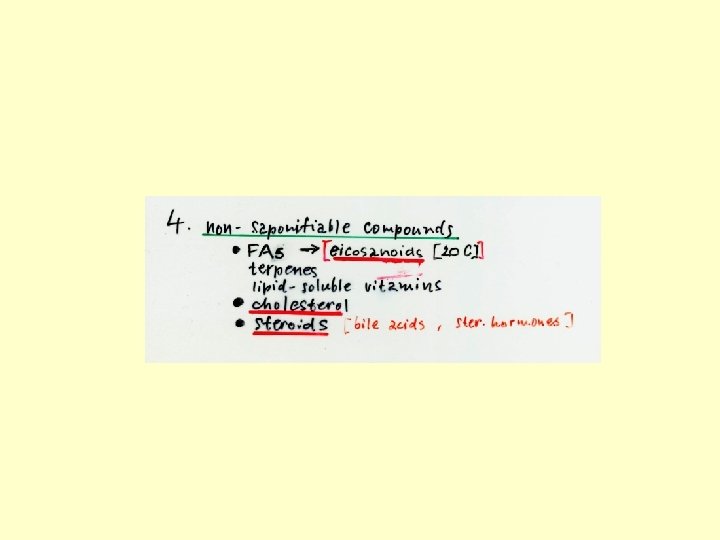 4. non-saponifiable compounds
• FAs → [eicosanoids [20 C]]
terpenes
lipid-soluble vitamins
• cholesterol
• steroids [bile acids, ster. hormones]